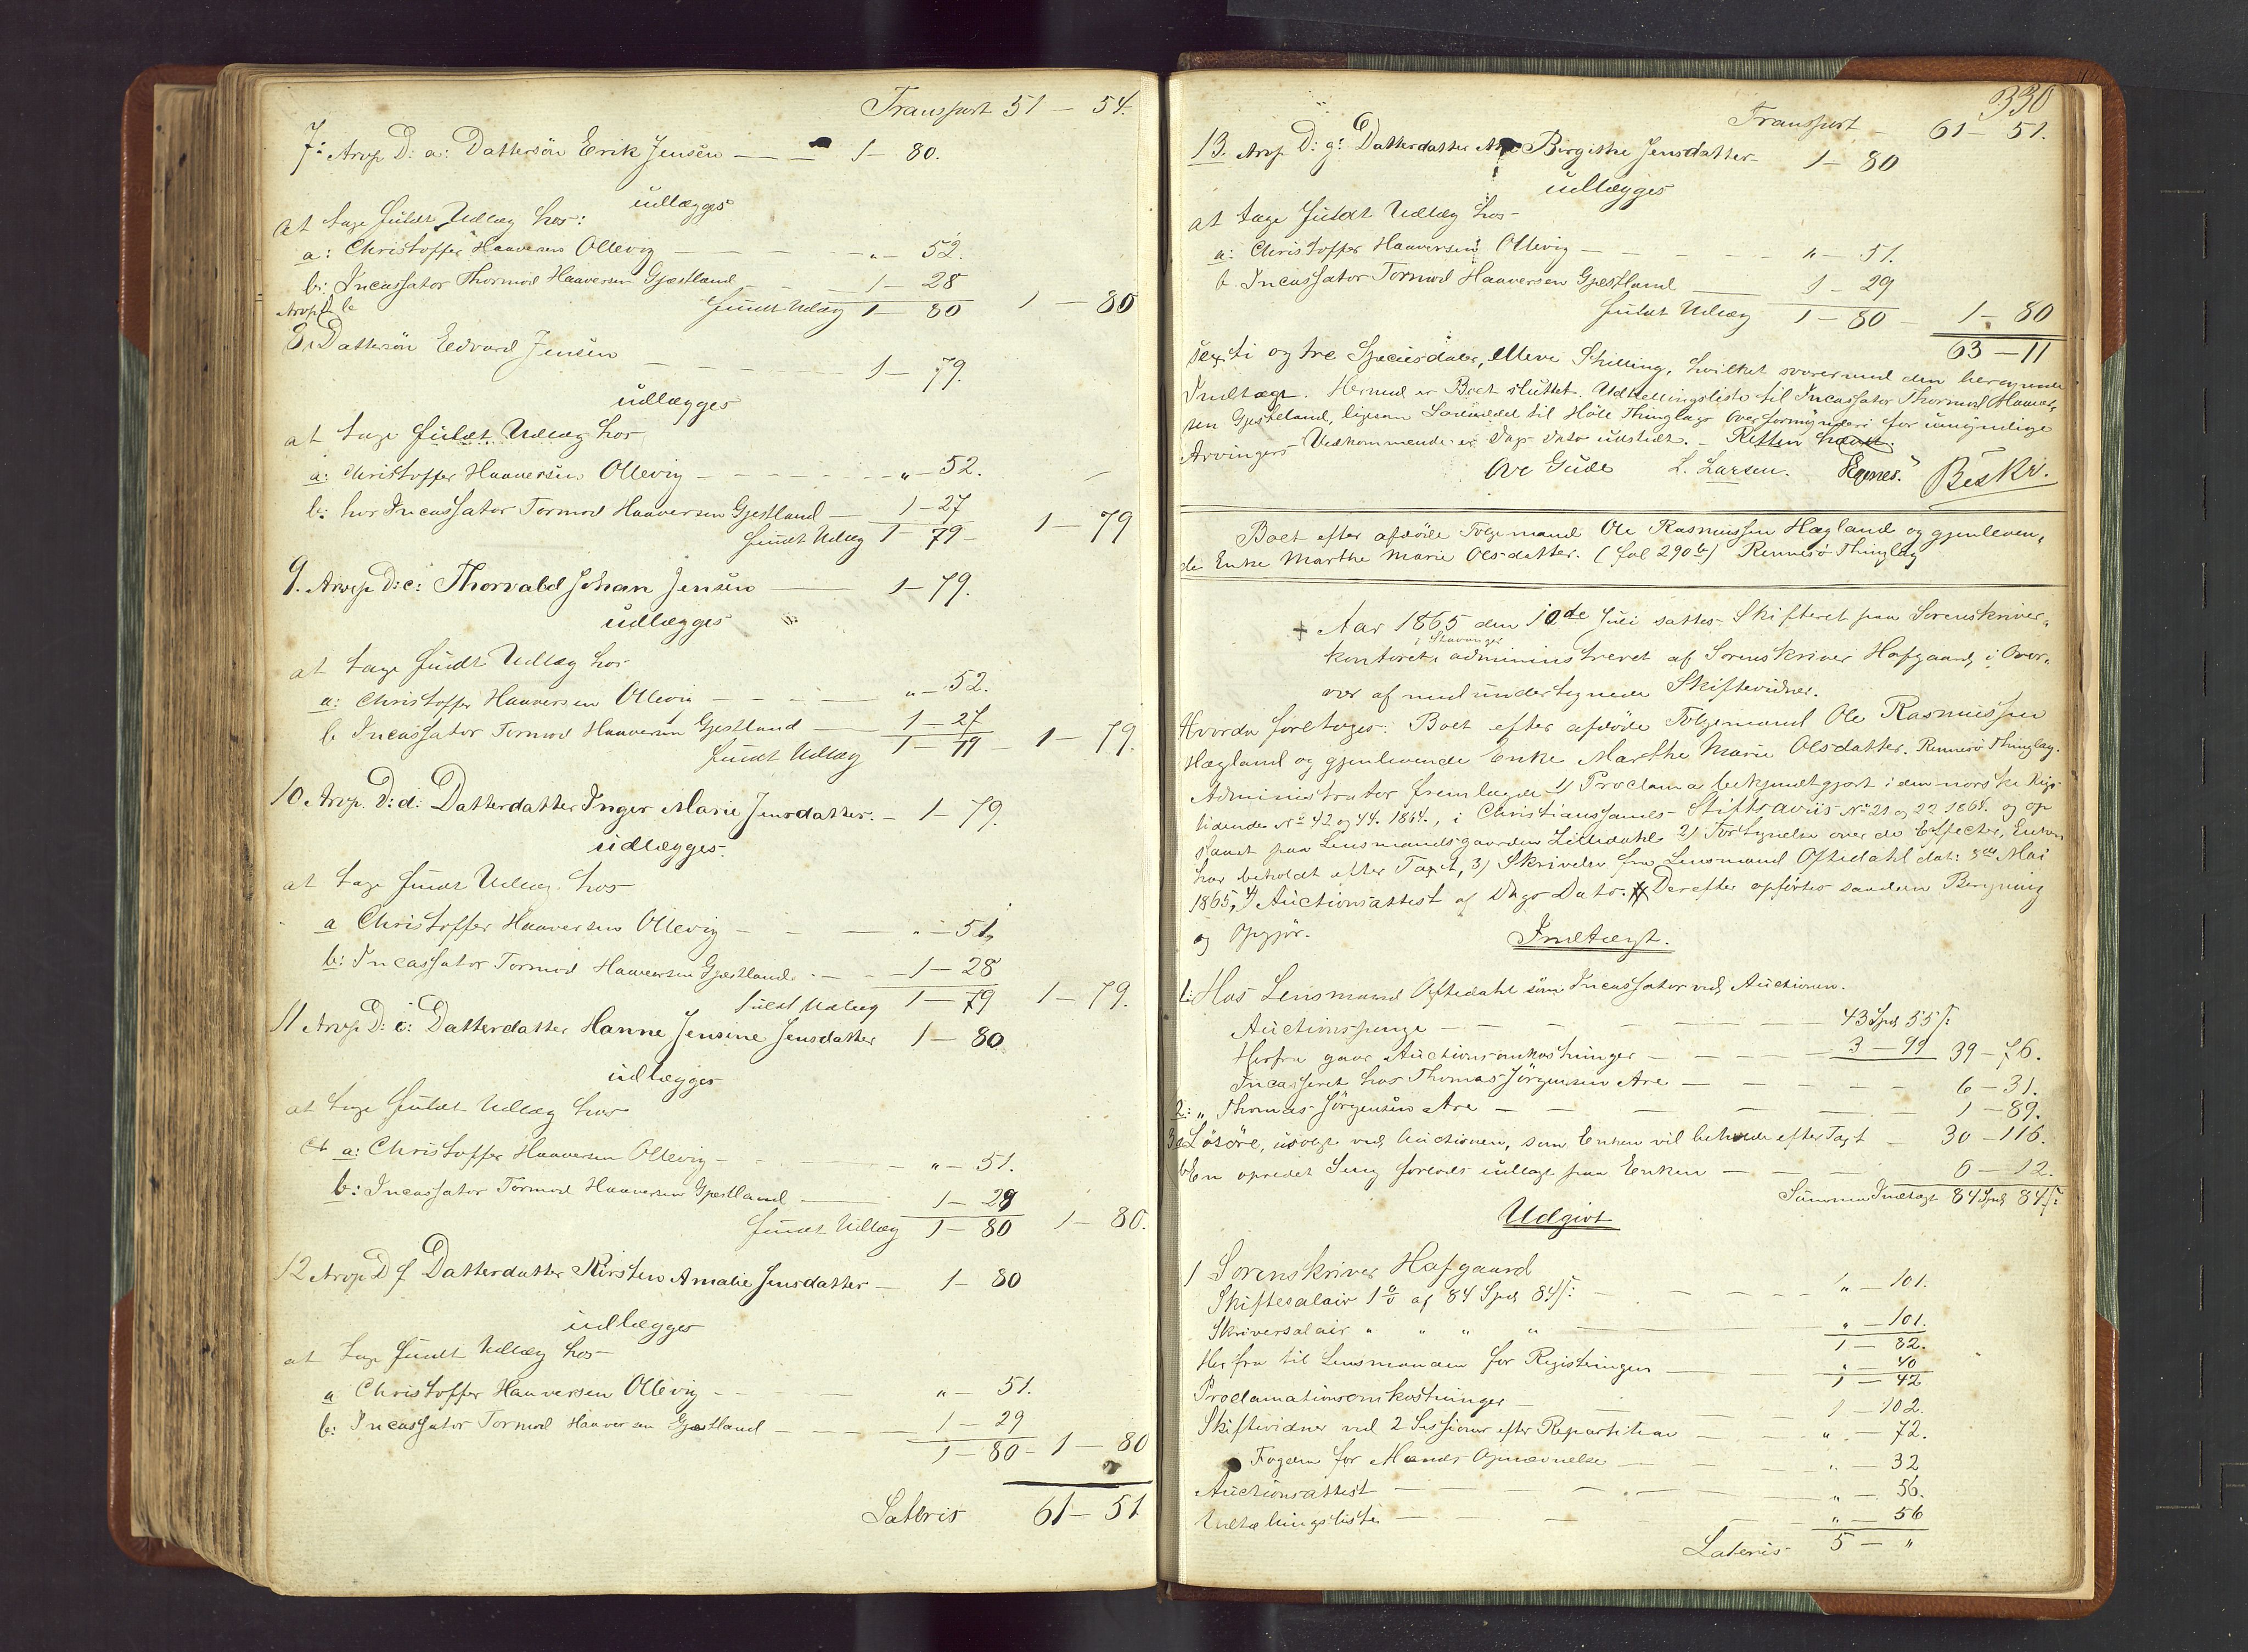 Transport 51 – 54.
7: Arvp D: a: Dattersön Erik Jensen — — 1 – 80.
udlægges
at tage fuldt Udlæg hos:
a: Christoffer Haaversen Ollevig — — — „ – 52.
b: Incassator Thormod Haaversen Gjestland — 1 – 28
fuldt Udlæg 1 – 80 1 – 80
Arvp D b
8. Dattersön Edvard Jensen — — — 1 – 79.
udlægges
at tage fuldt Udlæg hos
a: Christoffer Haaversen Ollevig — — — „ – 52.
b: hos Incassator Tormod Haaversen Gjestland — 1 – 27
fuldt Udlæg 1 – 79 – 1 – 79
9. Arvp D: c: Thorvald Johan Jensen — 1 – 79.
udlægges
at tage fuldt Udlæg hos
a: Christoffer Haaversen Ollevig — — — „ – 52.
b Incassator Tormod Haaversen Gjestland — 1 – 27
fuldt Udlæg 1 – 79 – 1 – 79.
10. Arvp. D: d: Datterdatter Inger Marie Jensdatter. – 1 – 79.
udlægges.
at tage fuldt Udlæg hos
a Christoffer Haaversen Ollevig — — — „ – 51.
b: Incassator Tormod Haaversen Gjestland — 1 – 28
fuldt Udlæg 1 – 79 1 – 79.
11 Arvp D: e: Datterdatter Hanne Jensine Jensdatter 1 – 80
udlægges
at tage fuldt Udlæg hos
a: Christoffer Haaversen Ollevig — — „ – 51.
b: Incassator Tormod Haaversen Gjestland — 1 – 29
fuldt Udlæg 1 – 80 1 – 80.
12 Arvp D f Datterdatter Kirsten Amalie Jensdatter – 1 – 80
udlægges
at tage fuldt Udlæg hos
a Christoffer Haaversen Ollevig — — „ – 51.
b: Incassator Tormod Haaversen Gjestland — — 1 – 29
1 – 80 – 1 – 80
Lateris 61 – 51
330
Transport – 61 – 51.
13. Arvp. D: g: Datterdatter Birgithe Jensdatter – 1 – 80
udlægges
at tage fuldt Udlæg hos
a: Christoffer Haaversen Ollevig — — — „ – 51.
b. Incassator Tormod Haaversen Gjestland — 1 – 29
fuldt Udlæg 1 – 80 – 1 – 80
63 – 11
sexti og tre Speciesdaler, elleve Skilling, hvilket svarer mod den beregnede
Indtægt. Hermed er Boet sluttet. Uddelingsliste til Incassator Thormod Haaver,
sen Gjestland, ligesom til Höle Thinglags Overformynderi for umyndige
Arvingers Vedkommende er Dags Dato udstedt. – Retten hævet.
Ove Gude L. Larsen. Egenes. Beskr.
Boet efter afdöde Folgemand Ole Rasmussen Hægland og gjenleven,
de Enke Marthe Marie Olsdatter. (fol 290 b) Rennesö Thinglag
+ Aar 1865 den 10de Juli sattes Skifteret paa Sorenskriver,
i Stavanger
kontoret administreret af Sorenskriver Hafgaard, i Over,
vær af medundertegnede Skiftevidner.
Hvorda foretoges: Boet efter afdöde Folgemand Ole Rasmussen
Hægland og gjenlevende Enke Marthe Marie Olsdatter. Rennesö Thinglag.
Administrator fremlagde 1) Proclama bekjendtgjort i den norske Rigs
tidende No 42 og 44. 1864., i Christianssands Stiftsavis No 21 og 22 1864. og op
slaaet paa Lensmandsgaarden 2) Fortegnelse over de Effecter, Enken
har beholdt efter Taxt, 3) Skrivelse fra Lensmand Oftedahl dat: 5te Mai
1865, 4) Auctionsattest af Dags Dato. Derefter opförtes saadan Beregning
og Opgjör.
Indtægt.
1: Hos Lensmand Oftedahl som Incassator ved Auctionen.
Auctionspenge — — — — 43 Spd 55 s:
Herfra gaar Auctionsomkostninger — — — 3 – 99 39 – 76.
Incasseret hos Thomas Jörgensen Are — — — 6 – 31.
2: „ Thomas Jörgensen Are — — — — 1 – 89.
3 a Lösöre, usolgt ved Auctionen, som Enken vil beholde efter Taxt – 30 – 116.
b En opredet Seng forlods udlagt paa Enken — — — 6 – 12.
Summa Indtægt 84 Spd 84 s:
Udgivt
1 Sorenskriver Hafgaard
Skiftesalair 1 % af 84 Spd 84 s: — — — „ – 101.
Skriversalair „ „ „ „ — „ – 101.
1 – 82.
Herfra til Lensmanden for Registringen — „ – 40
1 – 42
Proclamationsomkostninger — — 1 – 102.
Skiftevidner ved 2 Sessioner efter Repartition — — „ – 72.
Fogden for Mænds Opnævnelse — — — „ – 32
Auctionsattest — — — — „ – 56.
Udtællingsliste — — — — „ – 56
Lateris 5 – „